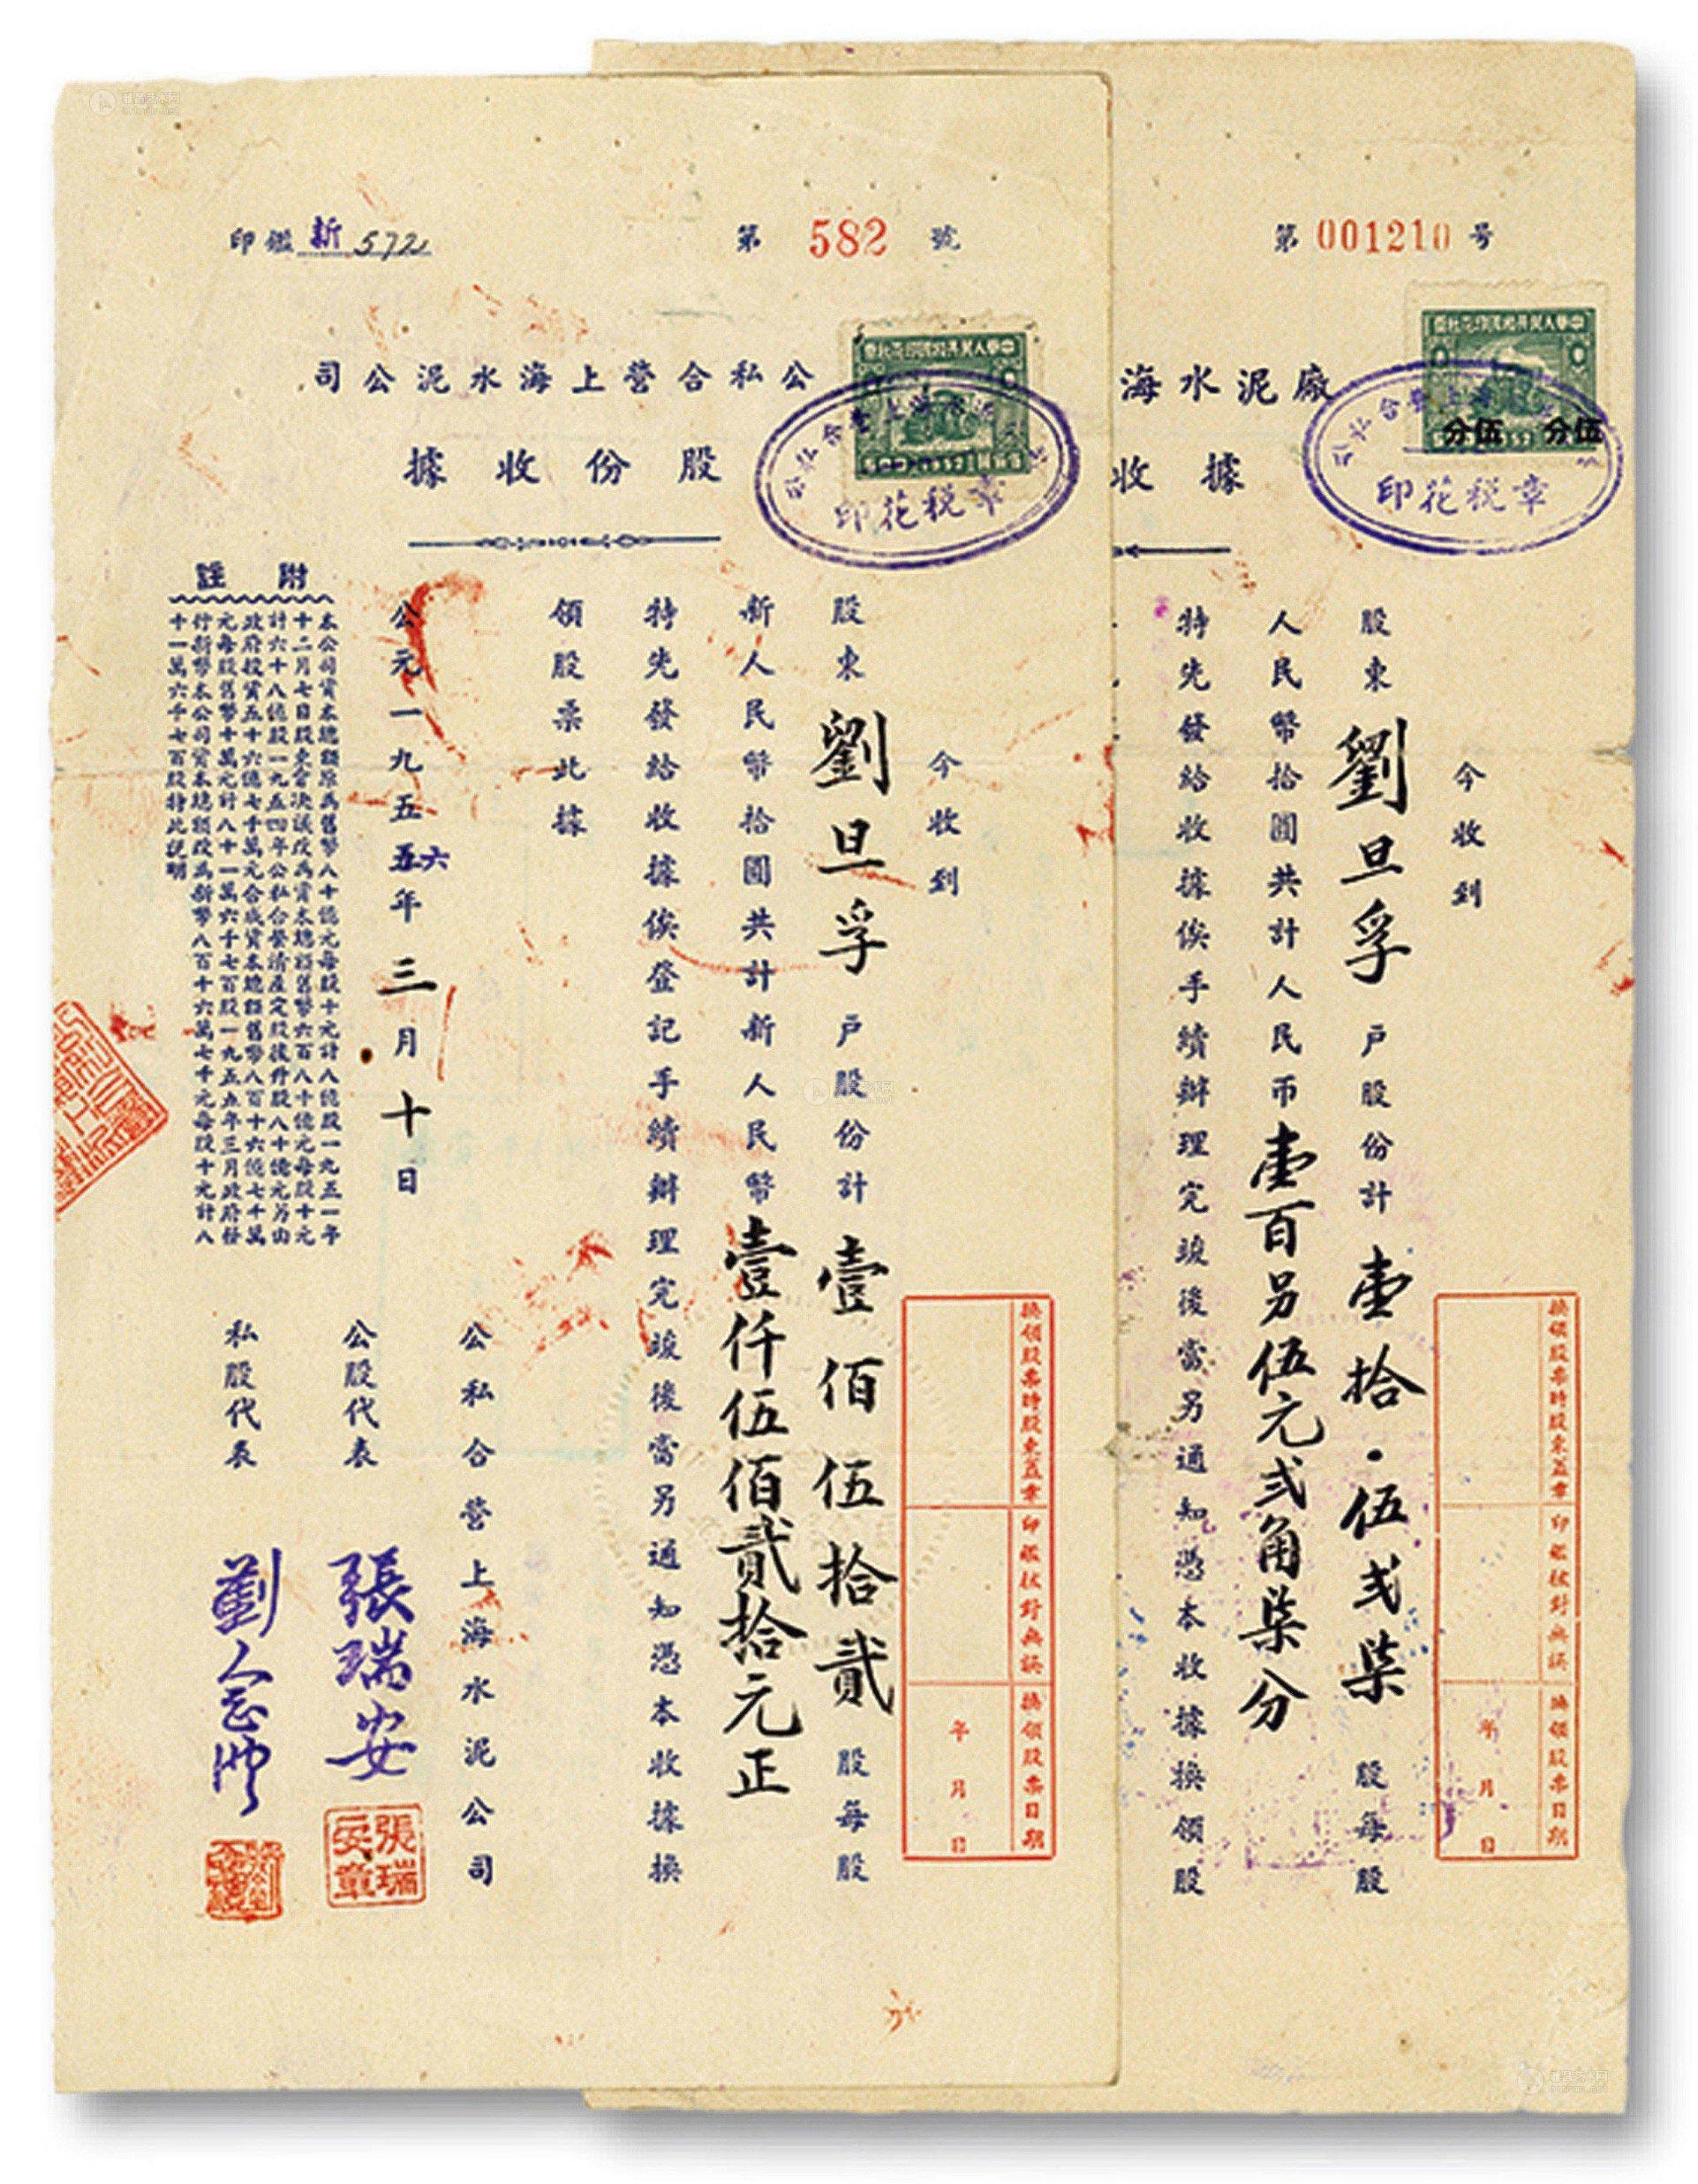 印鑑新572
第 582 號
司公泥水海上營合私公
據收份股
印花稅章
今收到
股東劉旦孚戶股份計壹佰伍拾貳股每股
新人民幣拾圓共計新人民幣壹仟伍佰貳拾元正
特先發給收據俟登記手續辦理完竣後當另通知憑本收據換
領股票此據
公元一九五五六年三月十日
附註
本公司資本總額原為舊幣八十億元每股十元計八億股一九五一年
十二月七日股東會決議改為資本總額舊幣六百八十億元每股十元
計六十八億股一九五四年公私合營清產定股後升股八十億元另由
政府投資五十六億七千萬元合成資本總額舊幣八百十六億七千萬
元每股舊幣十萬元計八十一萬六千七百股一九五五年三月政府發
行新幣本公司資本總額改為新幣八百十六萬七千元每股十元計八
十一萬六千七百股特此說明
公私合營上海水泥公司
公股代表 張瑞安
張瑞安章
私股代表 劉念
換領股票時股東蓋章
印鑑核對無誤
換領股票日期
年月日
第 001210 号
海水泥廠
收據
伍分 伍分
印花税章
今收到
股東劉旦孚戶股份計壹拾·伍弍柒股每股
人民幣拾圓共計人民币壹百另伍元弍角柒分
特先發給收據俟手續辦理完竣後當另通知憑本收據換領股
換領股票時股東蓋章
印鑑核對無誤
換領股票日期
年月日